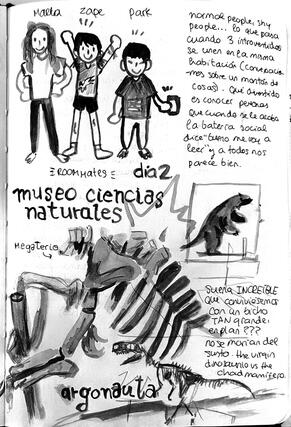 María
Zape
Park
normal people, shy
people... lo que pasa
cuando 3 introvertidos
se unen en la misma
habitación (conversacio-
nes sobre un montón de
cosas). Qué divertido
es conocer personas
que cuando se le acaba
la batería social
dice "bueno me voy a
leer" y a todos nos
parece bien.
ROOMMATES
día 2
museo ciencias
naturales
Megaterio
Suena INCREIBLE
que conviviésemos
con un bicho
TAN grande.
en plan ???
no se morían del
susto. the virgin
dinosaurio vs the
chad mamífero.
argonauta